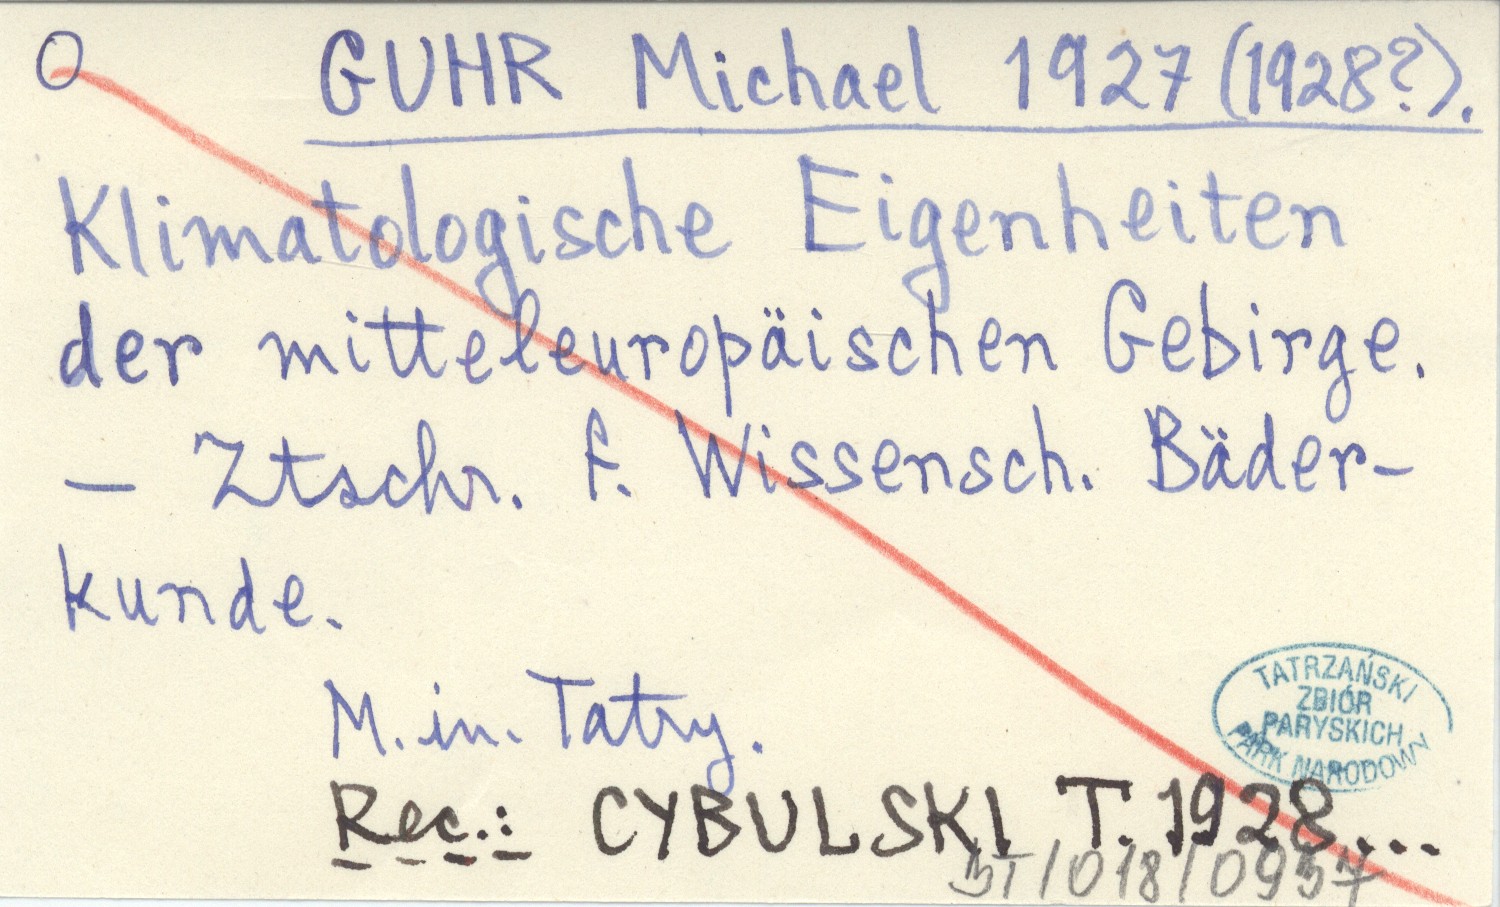 O GUHR Michael 1927 (1928?).
Klimatologische Eigenheiten
der mitteleuropäischen Gebirge.
— Ztschr. f. Wissensch. Bäder-
kunde.
M. in. Tatry.
TATRZAŃSKI
ZBIÓR
PARYSKICH
PARK NARODOWY
Rec.: CYBULSKI T. 1928...
BT/018/0937